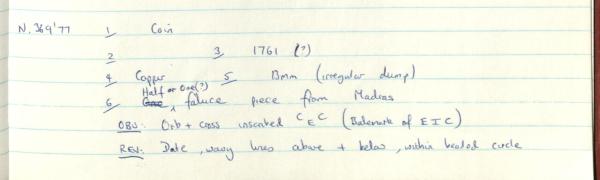 N. 369'77 1 Coin
2 3 1761 (?)
4 Copper 5 13mm (irregular dump)
Half or One(?)
6 One faluce piece from Madras
OBV: Orb + cross inscribed CEC (Balemark of EIC)
REV: Date, wavy lines above + below, within beaded circle